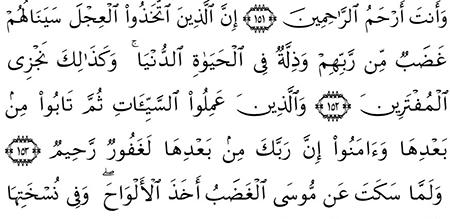 وَأَنتَ أَرْحَمُ ٱلرَّٰحِمِينَ ١٥١ إِنَّ ٱلَّذِينَ ٱتَّخَذُواْ ٱلْعِجْلَ سَيَنَالُهُمْ
غَضَبٌ مِّن رَّبِّهِمْ وَذِلَّةٌ فِى ٱلْحَيَوٰةِ ٱلدُّنْيَا ۚ وَكَذَٰلِكَ نَجْزِى
ٱلْمُفْتَرِينَ ١٥٢ وَٱلَّذِينَ عَمِلُواْ ٱلسَّيِّـَٔاتِ ثُمَّ تَابُواْ مِنۢ
بَعْدِهَا وَءَامَنُواْ إِنَّ رَبَّكَ مِنۢ بَعْدِهَا لَغَفُورٌ رَّحِيمٌ ١٥٣
وَلَمَّا سَكَتَ عَن مُّوسَى ٱلْغَضَبُ أَخَذَ ٱلْأَلْوَاحَ ۖ وَفِى نُسْخَتِهَا